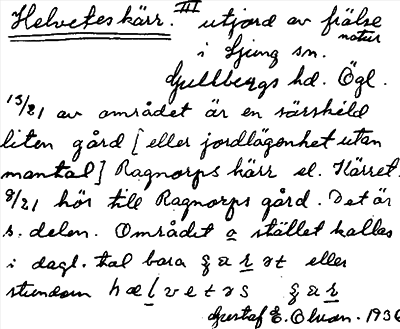 Helvetes kärr. III utjord av frälse
natur
i Ljung sn.
Gullbergs hd. Ögl.
13/21 av området är en särskild
liten gård [eller jordlägenhet utan
mantal] Ragnorps kärr el. Kärret.
8/21 hör till Ragnorps gård. Det är
s. delen. Området o stället kallas
i dagl. tal bara eller
stundom
Gustaf E. Olson. 1936